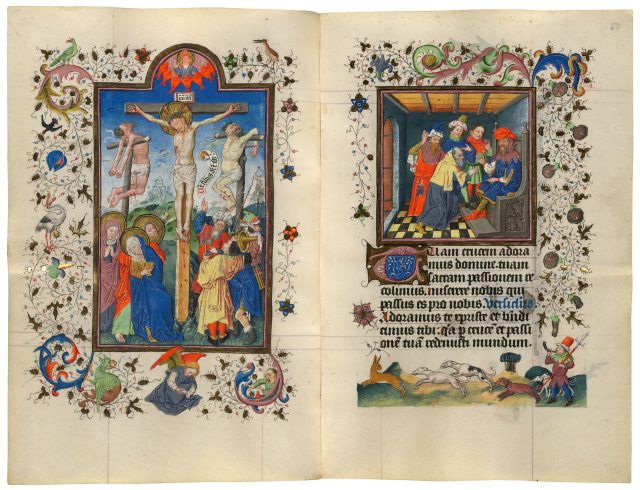 Tuam crucem adora
mus domine. tuam
sacram passionem re
colimus. miserere nobis qui
passus es pro nobis. Versiculus
Adoramus te christe et bn̄di
cimus tibi. q̄a p crucē et passi
onē tuā redemisti mundum.